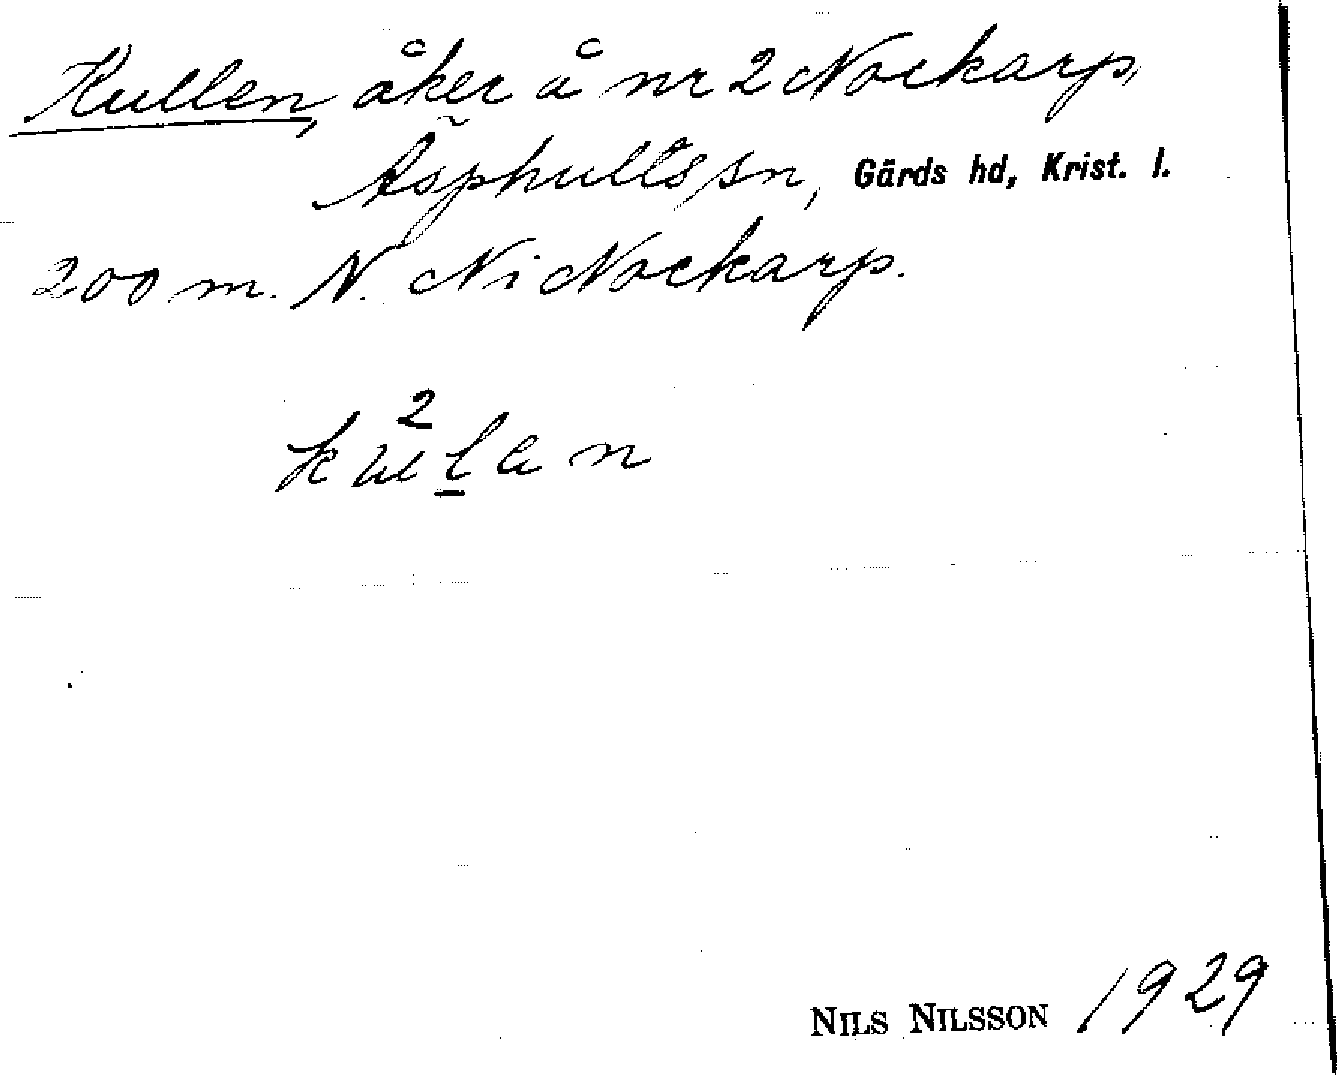 Kullen, åker å nr 2 Nockarp,
Äsphults sn, Gärds hd, Krist. l.
200 m. N. Ni Nockarp.
2
kulan
NILS NILSSON 1929